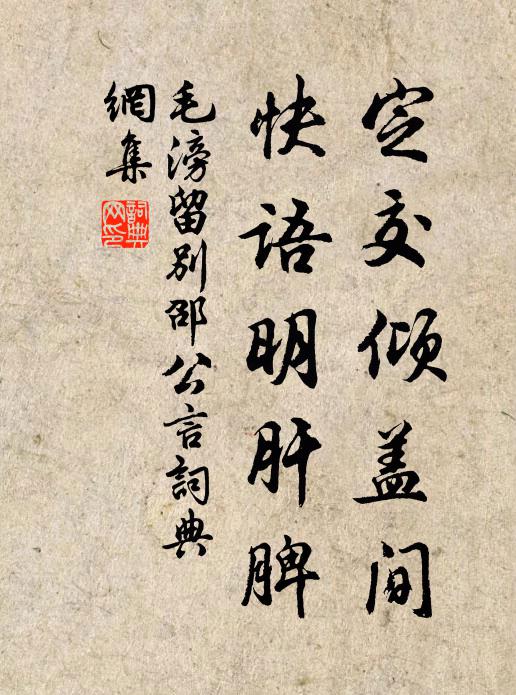 定交倾盖间
快语明肝脾
毛滂留别邵公言詞典
網集
詞典
网印